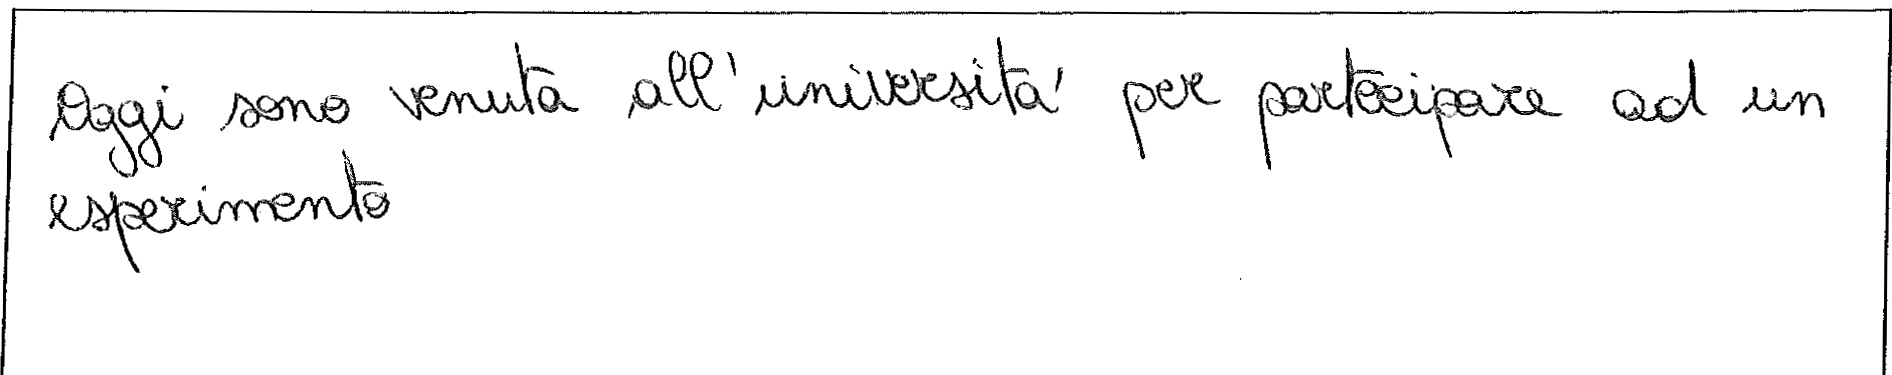 Oggi sono venuta all'università per partecipare ad un
esperimento